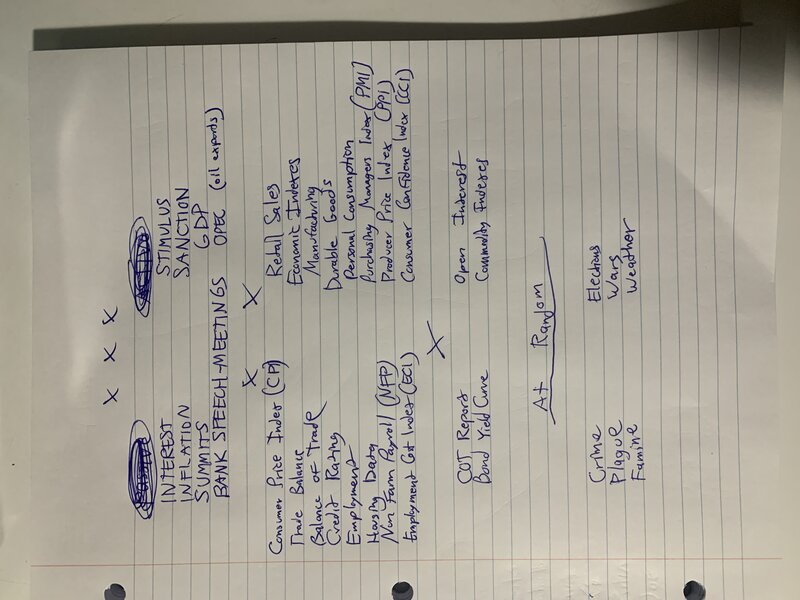 X X X
INTEREST STIMULUS
INFLATION SANCTION
SUMMITS GDP
BANK SPEECH-MEETINGS OPEC (oil exports)
X X
Consumer Price Index (CPI) Retail Sales
Trade Balance Economic Indexes
Balance of Trade Manufacturing
Credit Rating Durable Goods
Employment Personal Consumption
Housing Data Purchasing Managers Index (PMI)
Non Farm Payroll (NFP) Producer Price Index (PPI)
Employment Cost Index (ECI) Consumer Confidence Index (CCI)
X
COT Report Open Interest
Bond Yield Curve Commodity Indexes
At Random
Crime Elections
Plague Wars
Famine Weather